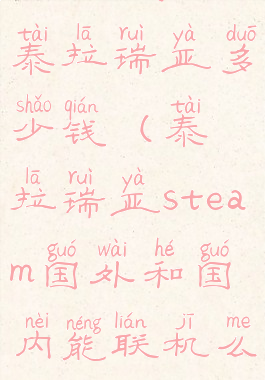 tài lā ruì yà duō
泰拉瑞亚多
shǎo qián tài
少钱（泰
lā ruì yà
拉瑞亚stea
guó wài hé guó
m国外和国
nèi néng lián jī me
内能联机么